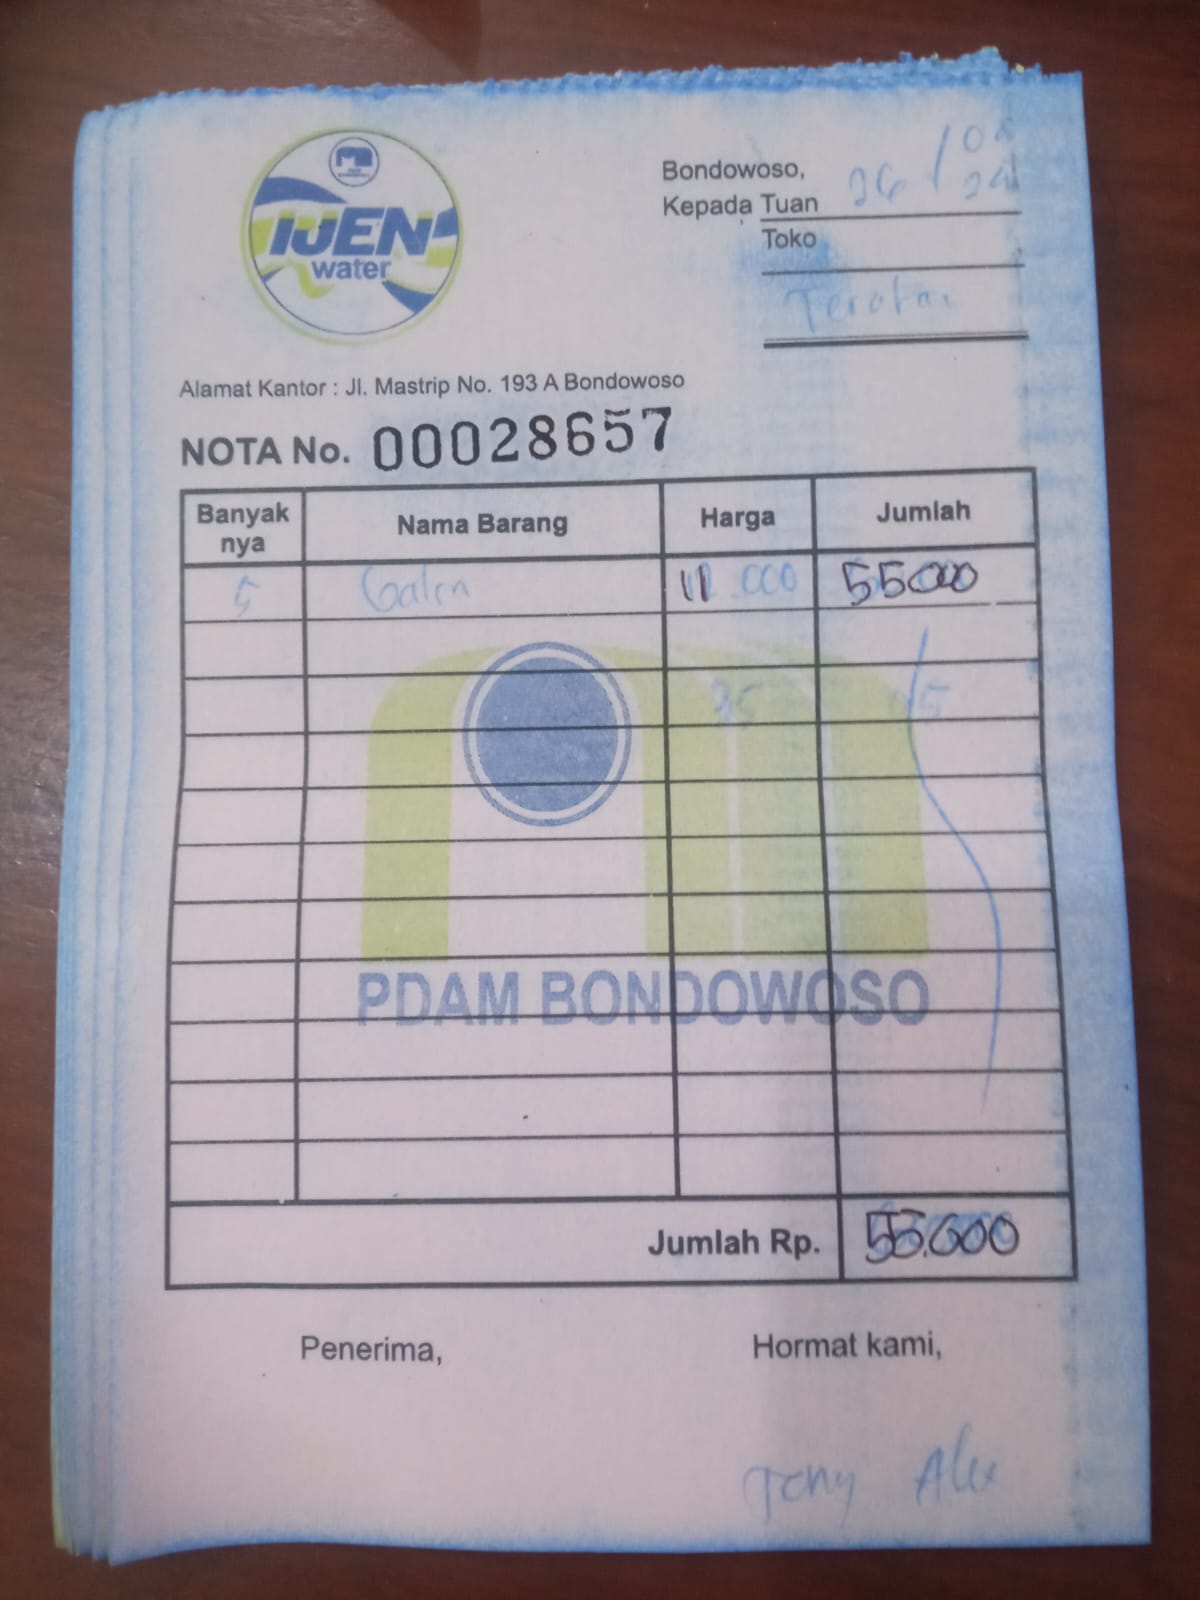 IJEN
water
Bondowoso, 26/
Kepada Tuan
Toko
Teratai
Alamat Kantor : Jl. Mastrip No. 193 A Bondowoso
NOTA No. 00028657
Banyak nya Nama Barang Harga Jumlah
5 Galon 11.000 55000
PDAM BONDOWOSO
Jumlah Rp. 55.000
Penerima, Hormat kami,
Tony